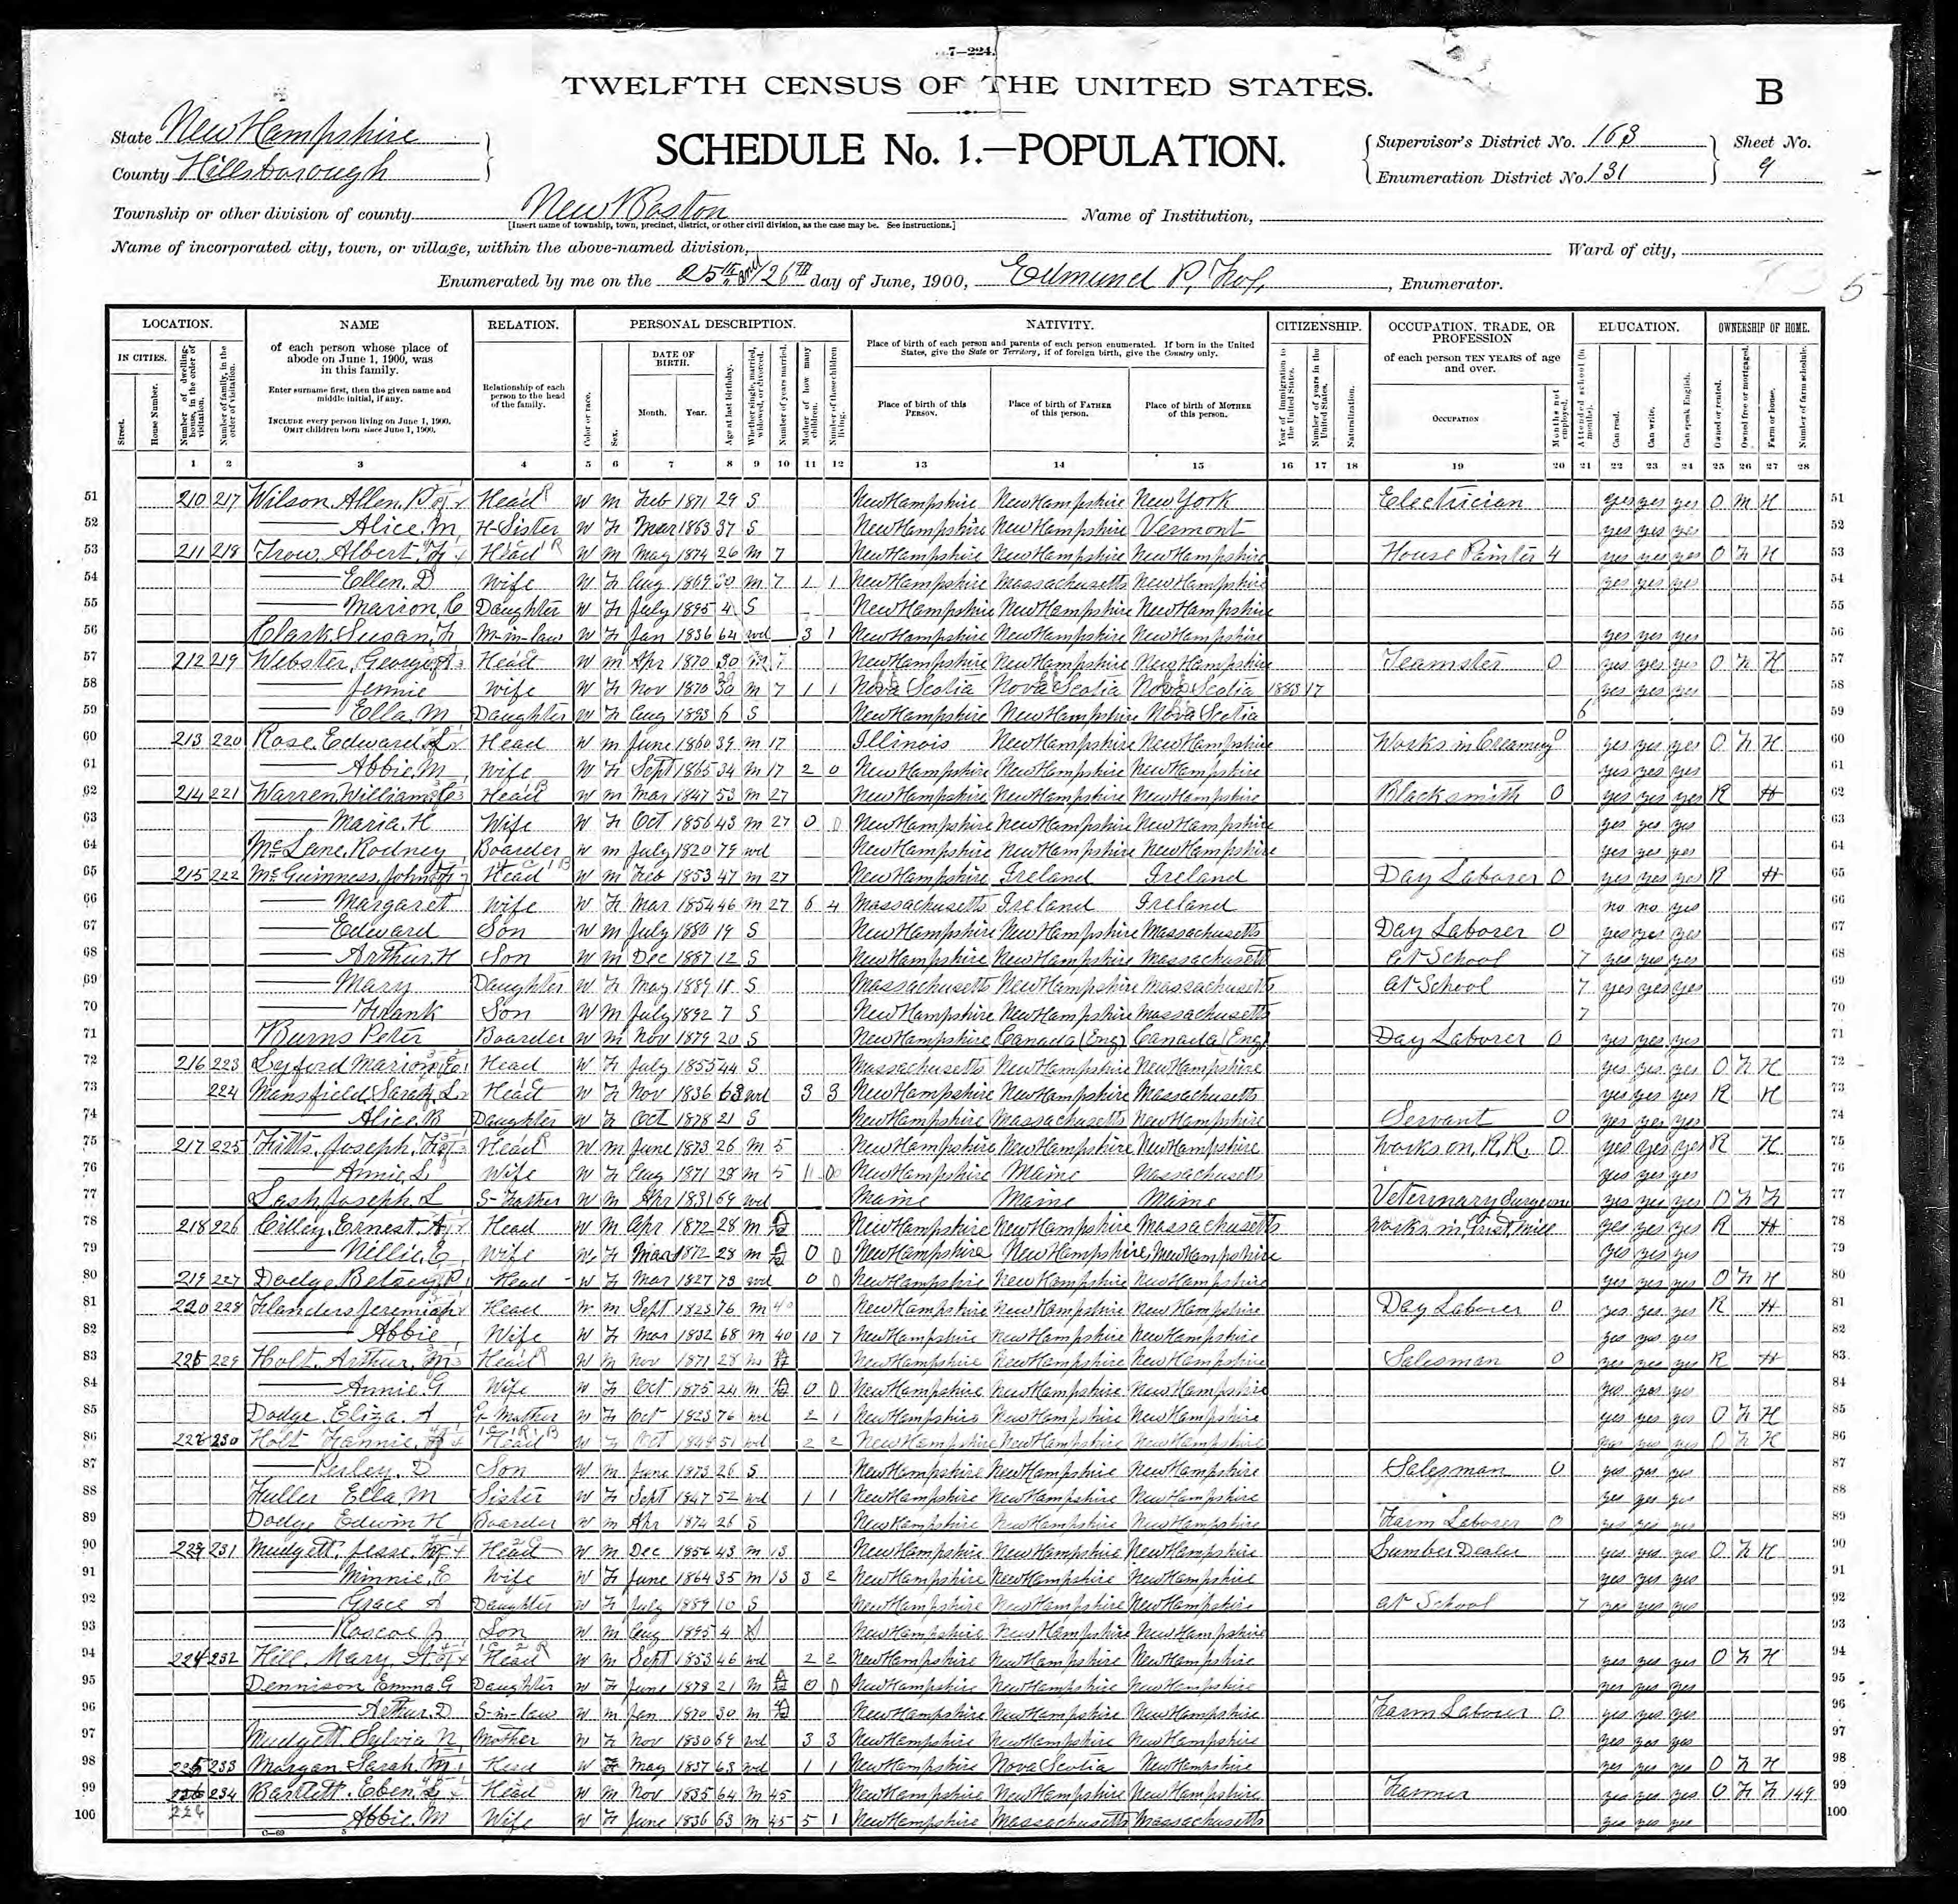 7—224.
TWELFTH CENSUS OF THE UNITED STATES.
B
State New Hampshire
County Hillsborough
SCHEDULE No. 1.—POPULATION.
Supervisor's District No. 163 Sheet No.
Enumeration District No. 131 9
Township or other division of county New Boston Name of Institution,
[Insert name of township, town, precinct, district, or other civil division, as the case may be. See instructions.]
Name of incorporated city, town, or village, within the above-named division, Ward of city,
Enumerated by me on the 25th and 26th day of June, 1900, Edmund P. , Enumerator.
5
LOCATION. NAME RELATION. PERSONAL DESCRIPTION. NATIVITY. CITIZENSHIP. OCCUPATION, TRADE, OR PROFESSION EDUCATION. OWNERSHIP OF HOME.
IN CITIES. Street. House Number. Number of dwelling-house, in the order of visitation. Number of family, in the order of visitation.
of each person whose place of abode on June 1, 1900, was in this family.
Enter surname first, then the given name and middle initial, if any.
INCLUDE every person living on June 1, 1900. OMIT children born since June 1, 1900.
Relationship of each person to the head of the family.
Color or race. Sex. DATE OF BIRTH. Month. Year. Age at last birthday. Whether single, married, widowed, or divorced. Number of years married. Mother of how many children. Number of these children living.
Place of birth of each person and parents of each person enumerated. If born in the United States, give the State or Territory; if of foreign birth, give the Country only.
Place of birth of this PERSON. Place of birth of FATHER of this person. Place of birth of MOTHER of this person.
Year of immigration to the United States. Number of years in the United States. Naturalization.
of each person TEN YEARS of age and over. OCCUPATION Months not employed.
Attended school (in months). Can read. Can write. Can speak English.
Owned or rented. Owned free or mortgaged. Farm or house. Number of farm schedule.
1 2 3 4 5 6 7 8 9 10 11 12 13 14 15 16 17 18 19 20 21 22 23 24 25 26 27 28
51 210 217 Wilson, Allen, P Head W M Feb 1871 29 S New Hampshire New Hampshire New York Electrician yes yes yes O M H 51
52 Alice, M, H-Sister W F Mar 1863 37 S New Hampshire New Hampshire Vermont yes yes yes 52
53 211 218 Trow, Albert, Head W M May 1874 26 M 7 New Hampshire New Hampshire New Hampshire House Painter 4 yes yes yes O F H 53
54 Ellen, D Wife W F Aug 1869 30 M 7 1 1 New Hampshire Massachusetts New Hampshire yes yes yes 54
55 Marion, C Daughter W F July 1895 4 S New Hampshire New Hampshire New Hampshire 55
56 Clark, Susan, F M-in-law W F Jan 1836 64 wd 3 1 New Hampshire New Hampshire New Hampshire yes yes yes 56
57 212 219 Webster, George Head W M Apr 1870 30 M 7 New Hampshire New Hampshire New Hampshire Teamster 0 yes yes yes O F H 57
58 Jennie Wife W F Nov 1870 M 7 1 1 Nova Scotia Nova Scotia Nova Scotia 1883 17 yes yes yes 58
59 Ella, M Daughter W F Aug 1893 6 S New Hampshire New Hampshire Nova Scotia 6 59
60 213 220 Rose, Edward Head W M June 1860 39 M 17 Illinois New Hampshire New Hampshire Works in Creamery 0 yes yes yes O F H 60
61 Abbie, M, Wife W F Sept 1865 34 M 17 2 0 New Hampshire New Hampshire New Hampshire yes yes yes 61
62 214 221 Warren, William, Head W M Mar 1847 53 M 27 New Hampshire New Hampshire New Hampshire Blacksmith 0 yes yes yes R H 62
63 Maria, H Wife W F Oct 1856 43 M 27 0 0 New Hampshire New Hampshire New Hampshire yes yes yes 63
64 McLane, Rodney Boarder W M July 1820 79 wd New Hampshire New Hampshire New Hampshire yes yes yes 64
65 215 222 McGuinness, John Head W M Feb 1853 47 M 27 New Hampshire Ireland Ireland Day Laborer 0 yes yes yes R H 65
66 Margaret Wife W F Mar 1854 46 M 27 6 4 Massachusetts Ireland Ireland no no yes 66
67 Edward Son W M July 1880 19 S New Hampshire New Hampshire Massachusetts Day Laborer 0 yes yes yes 67
68 Arthur, H Son W M Dec 1887 12 S New Hampshire New Hampshire Massachusetts At School 7 yes yes yes 68
69 Mary Daughter W F May 1889 11 S Massachusetts New Hampshire Massachusetts At School 7 yes yes yes 69
70 Frank Son W M July 1892 7 S New Hampshire New Hampshire Massachusetts 7 70
71 Burns Peter Boarder W M Nov 1879 20 S New Hampshire Canada (Eng) Canada (Eng) Day Laborer 0 yes yes yes 71
72 216 223 Lyford Marion, E Head W F July 1855 44 S Massachusetts New Hampshire New Hampshire yes yes yes O F H 72
73 224 Mansfield, Sarah, L Head W F Nov 1836 63 wd 3 3 New Hampshire New Hampshire Massachusetts yes yes yes R H 73
74 Alice, B Daughter W F Oct 1878 21 S New Hampshire Massachusetts New Hampshire Servant 0 yes yes yes 74
75 217 225 Fitts, Joseph, Head W M June 1873 26 M 5 New Hampshire New Hampshire New Hampshire Works on, R.R. 0 yes yes yes R H 75
76 Annie, L Wife W F Aug 1871 28 M 5 1 0 New Hampshire Maine Massachusetts yes yes yes 76
77 Joseph, L S-Father W M Apr 1831 69 wd Maine Maine Maine Veterinary Surgeon yes yes yes O F F 77
78 218 226 Cilley, Ernest, A Head W M Apr 1872 28 M New Hampshire New Hampshire Massachusetts Works in, Grist, Mill yes yes yes R H 78
79 Nillie, E Wife W F Mar 1872 28 M 0 0 New Hampshire New Hampshire New Hampshire yes yes yes 79
80 219 227 Dodge, Betsey, P Head W F Mar 1827 73 wd 0 0 New Hampshire New Hampshire New Hampshire yes yes yes O F H 80
81 220 228 Flanders Jeremiah Head W M Sept 1823 76 M 40 New Hampshire New Hampshire New Hampshire Day Laborer 0 yes yes yes R H 81
82 Abbie Wife W F Mar 1832 68 M 40 10 7 New Hampshire New Hampshire New Hampshire yes yes yes 82
83 221 229 Holt, Arthur, M Head W M Nov 1871 28 M New Hampshire New Hampshire New Hampshire Salesman 0 yes yes yes R H 83
84 Annie, G Wife W F Oct 1875 24 M 0 0 New Hampshire New Hampshire New Hampshire yes yes yes 84
85 Dodge, Eliza, A G-Mother W F Oct 1823 76 wd 2 1 New Hampshire New Hampshire New Hampshire yes yes yes O F H 85
86 222 230 Holt Fannie, Head W F Oct 1848 51 wd 2 2 New Hampshire New Hampshire New Hampshire yes yes yes O F H 86
87 Perley, D Son W M June 1873 26 S New Hampshire New Hampshire New Hampshire Salesman 0 yes yes yes 87
88 Fuller Ella, M Sister W F Sept 1847 52 wd 1 1 New Hampshire New Hampshire New Hampshire yes yes yes 88
89 Dodge Edwin H Boarder W M Apr 1874 26 S New Hampshire New Hampshire New Hampshire Farm Laborer 0 yes yes yes 89
90 231 Mudgett, Jesse, Head W M Dec 1856 43 M 13 New Hampshire New Hampshire New Hampshire Lumber Dealer yes yes yes O F H 90
91 Minnie, E Wife W F June 1864 35 M 13 3 2 New Hampshire New Hampshire New Hampshire yes yes yes 91
92 Grace A Daughter W F July 1889 10 S New Hampshire New Hampshire New Hampshire At School 7 yes yes yes 92
93 Roscoe Son W M Aug 1895 4 S New Hampshire New Hampshire New Hampshire 93
94 224 232 Hill, Mary, A Head W M Sept 1853 46 wd 2 2 New Hampshire New Hampshire New Hampshire yes yes yes O F H 94
95 Dennison Emma G Daughter W F June 1878 21 M 0 0 New Hampshire New Hampshire New Hampshire yes yes yes 95
96 Arthur, D S-in-law W M Jan 1870 30 M New Hampshire New Hampshire New Hampshire Farm Laborer 0 yes yes yes 96
97 Mudgett Sylvia N, Mother W F Nov 1830 69 wd 3 3 New Hampshire New Hampshire New Hampshire yes yes yes 97
98 225 233 Morgan Sarah, M Head W F May 1837 63 wd 1 1 New Hampshire Nova Scotia New Hampshire yes yes yes O F H 98
99 226 234 Bartlett, Eben, Head W M Nov 1835 64 M 45 New Hampshire New Hampshire New Hampshire Farmer yes yes yes O F F 149 99
100 226 Abbie, M Wife W F June 1836 63 M 45 5 1 New Hampshire Massachusetts Massachusetts yes yes yes 100